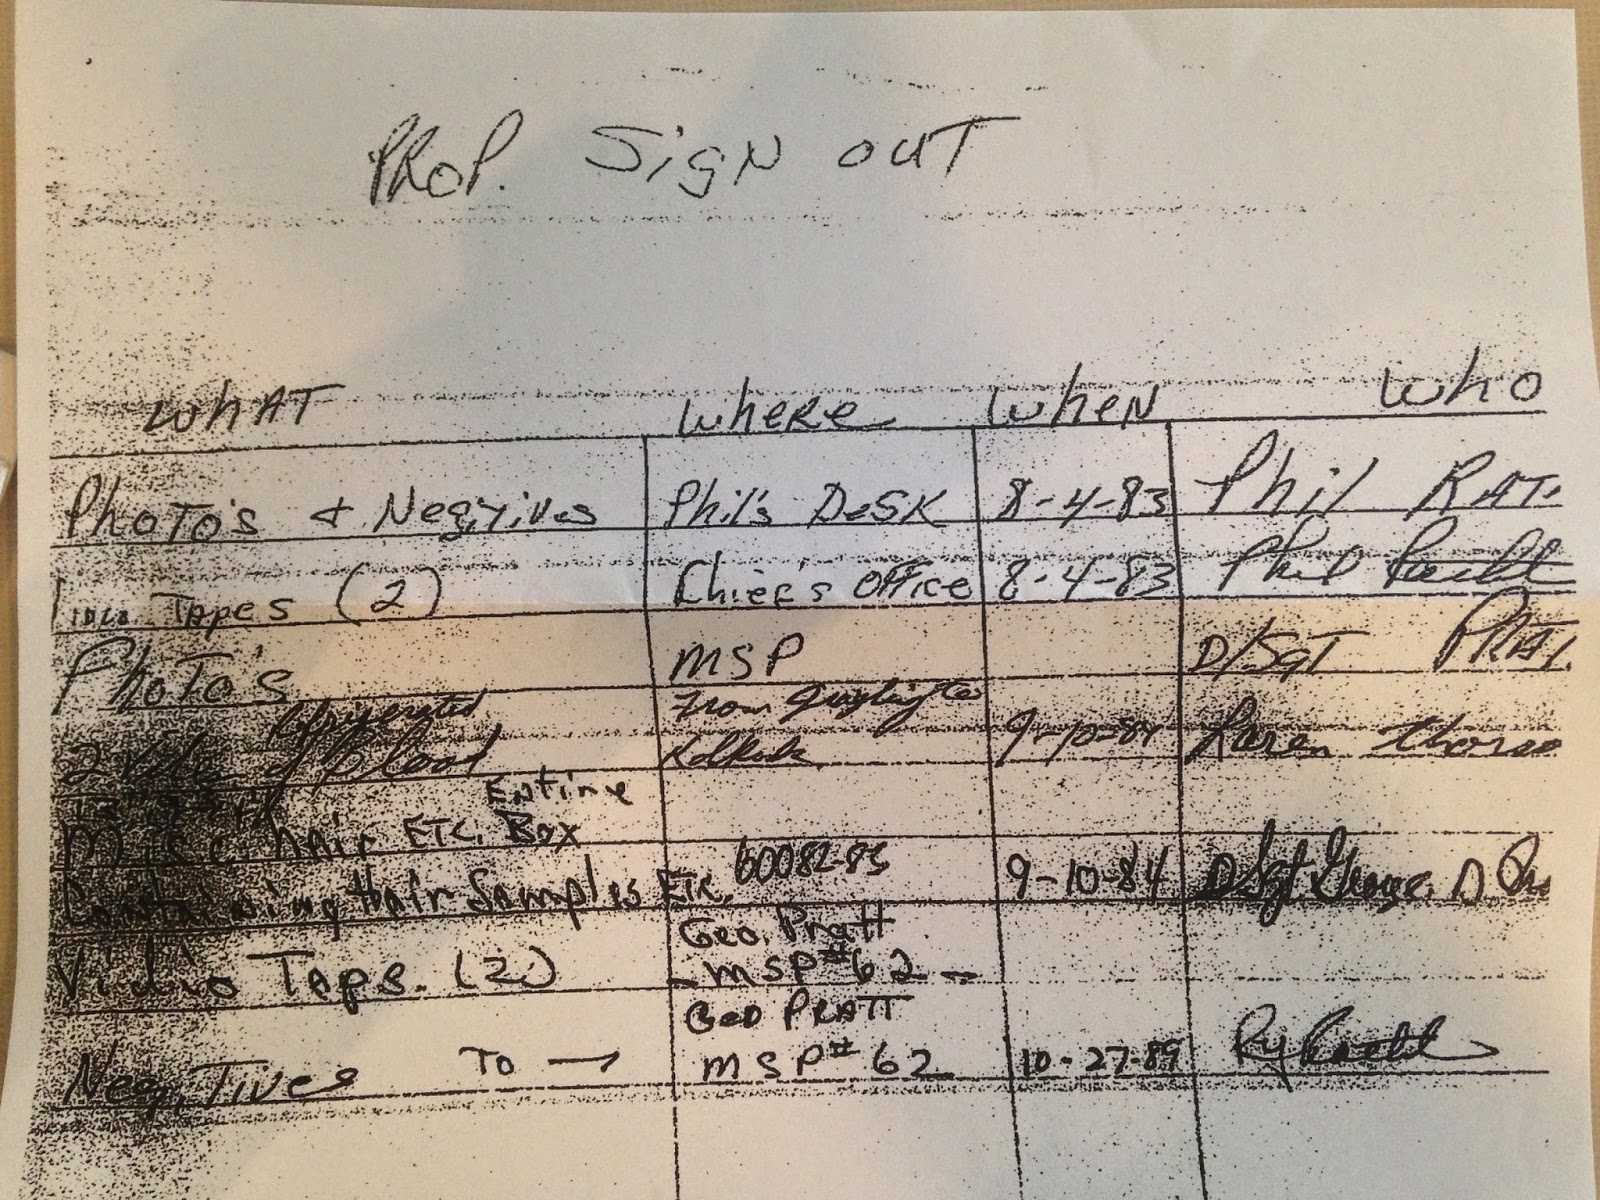 PROP. SigN OUT
WHAT Where When WHO
PHOTO'S & Negitives Phil's DeSK 8-4-83 Phil RATI
TAPES (2) Chief's OFFice 8-4-83 Phil
PHOTO'S MSP D/SgT PRAT
refrigerated From
2 of blood 9-10-84 Karen
Entire
Misc. hair ETC. Box
Containing Hair Samples ETC. 60082-83 9-10-84 D/Sgt George D
Geo. Pratt
Vidio Taps. (2) - MSP #62 -
Geo PRATT
NegiTives TO → MSP #62 10-27-89